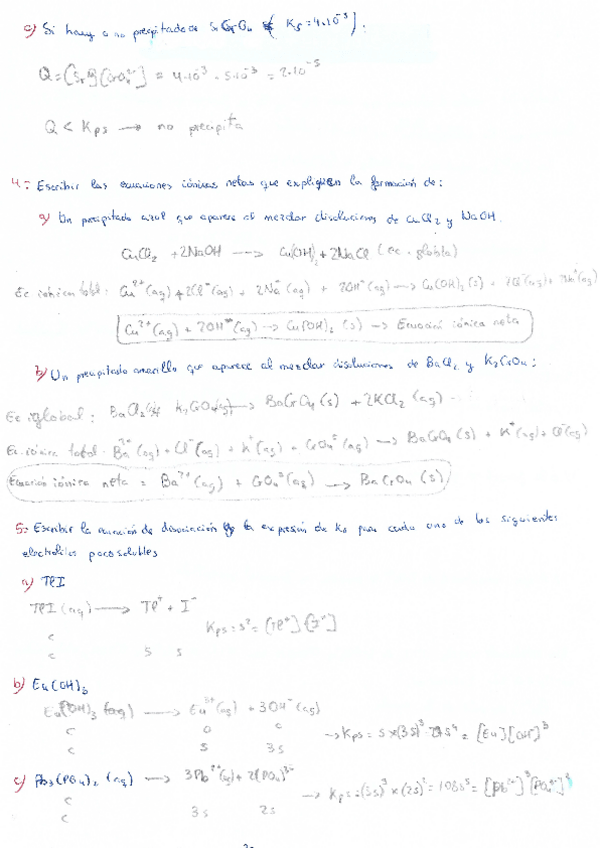 c) Si hay o no precipitado de SrCrO₄ [Ks = 4·10⁻⁵].
Q = [Sr][CrO₄²⁻] = 4·10⁻³ · 5·10⁻³ = 2·10⁻⁵
Q < Kps → no precipita
4.- Escribir las ecuaciones iónicas netas que expliquen la formación de:
a) Un precipitado azul que aparece al mezclar disoluciones de CuCl₂ y NaOH.
CuCl₂ + 2NaOH → Cu(OH)₂ + 2NaCl (ec. global)
Ec iónica total: Cu²⁺(ag) + 2Cl⁻(ag) + 2Na⁺(ag) + 2OH⁻(ag) → Cu(OH)₂(s) + 2Cl⁻(ag) + 2Na⁺(ag)
Cu²⁺(ag) + 2OH⁻(ag) → Cu(OH)₂ (s) → Ecuación iónica neta
b) Un precipitado amarillo que aparece al mezclar disoluciones de BaCl₂ y K₂CrO₄:
Ec global: BaCl₂ K₂CrO₄(ag) → BaCrO₄(s) + 2KCl₂ (ag)
Ec. iónica total: Ba²⁺(ag) + Cl⁻(ag) + K⁺(ag) + CrO₄²⁻(ag) → BaCrO₄(s) + K⁺(ag) + Cl⁻(ag)
Ecuación iónica neta = Ba²⁺(ag) + CrO₄²⁻(ag) → BaCrO₄ (s)
5.- Escribir la ecuación de disociación y la expresión de Ks para cada uno de los siguientes
electrolitos poco solubles
a) TlI
TlI (ag) → Tl⁺ + I⁻
c
Kps = s² = [Tl⁺][I⁻]
c s s
b) Eu(OH)₃
Eu(OH)₃ (ag) → Eu³⁺(ag) + 3OH⁻(ag)
c 0 0
c s 3s
→ Kps = s × (3s)³ = 27s⁴ = [Eu][OH⁻]³
c) Pb₃(PO₄)₂ (ag) → 3Pb²⁺(ag) + 2(PO₄)³⁻
c
c 3s 2s
→ Kps = (3s)³ × (2s)² = 108s⁵ = [Pb²⁺]³[PO₄³⁻]²